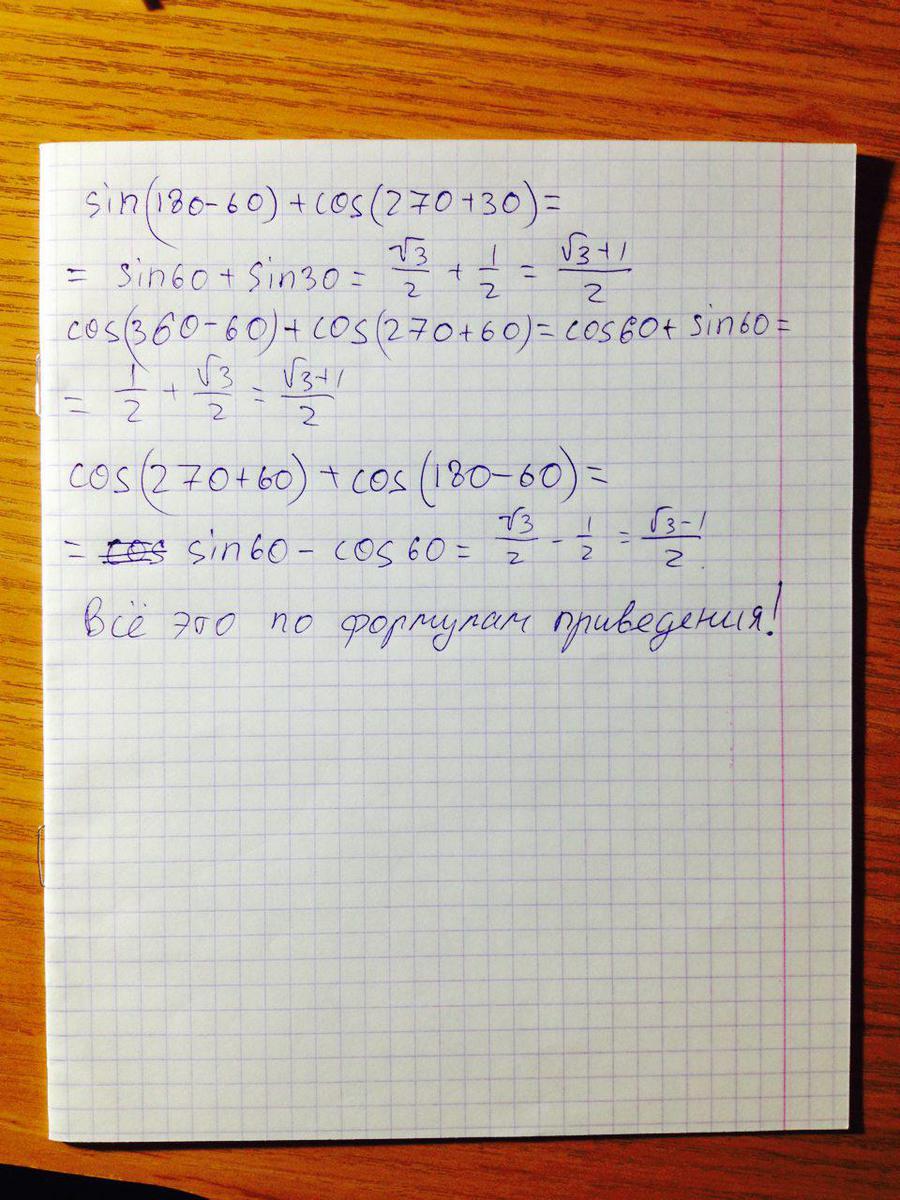 sin(180-60)+cos(270+30)=
= sin60+sin30= √3/2 + 1/2 = √3+1/2
cos(360-60)+cos(270+60)=cos60+sin60=
= 1/2 + √3/2 = √3+1/2
cos(270+60)+cos(180-60)=
= ~~cos~~ sin60-cos60= √3/2 - 1/2 = √3-1/2
Всё это по формулам приведения!